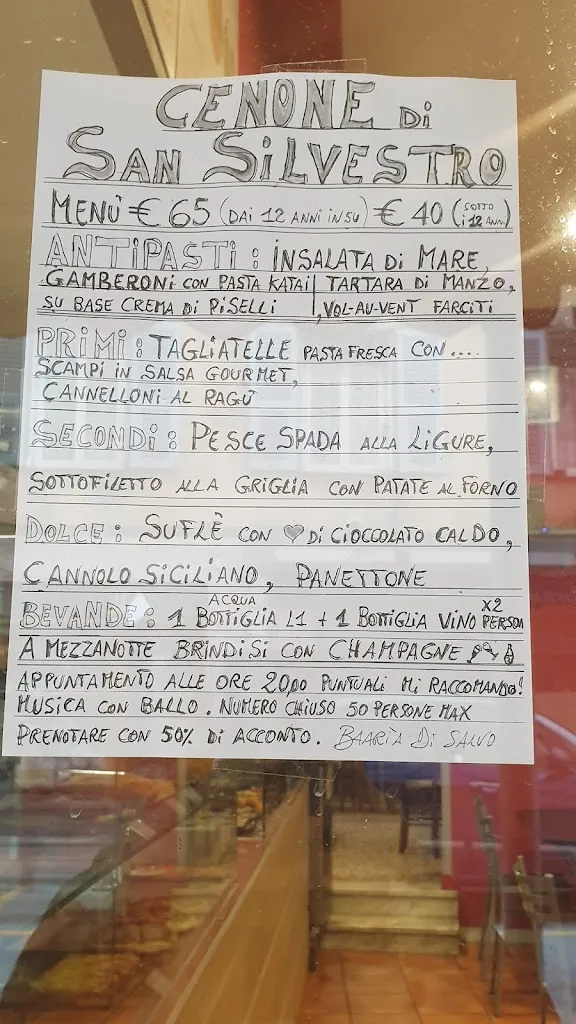 CENONE Di
SAN SiLVESTRO
MENÙ € 65 (DAI 12 ANNI IN SU) € 40 (SOTTO i 12 ANNI)
ANTIPASTI: iNSALATA Di MARE,
GAMBERONi CON PASTA KATAI | TARTARA Di MANZO,
SU BASE CREMA Di PiSELLi ,VOL-AU-VENT FARCiTi
PRiMi: TAGLiATELLE PASTA FRESCA CON....
SCAMPI IN SALSA GOURMET,
CANNELLONi AL RAGÙ
SECONDi: PESCE SPADA ALLA LiGURE,
SOTTOFiLETTO ALLA GRiGLiA CON PATATE AL FORNO
DOLCE: SUFLÈ CON ♥ Di CiOCCOLATO CALDO,
CANNOLO SiCiLiANO, PANETTONE
BEVANDE: 1 BOTTIGLIA ACQUA L1 + 1 BOTTIGLIA VINO X2 PERSON
A MEZZANOTTE BRiNDiSi CON CHAMPAGNE
APPUNTAMENTO ALLE ORE 20,00 PUNTUALi Mi RACCOMANDO!
MUSICA CON BALLO. NUMERO CHIUSO 50 PERSONE MAX
PRENOTARE CON 50% Di ACCONTO. BAARìA Di SALVO